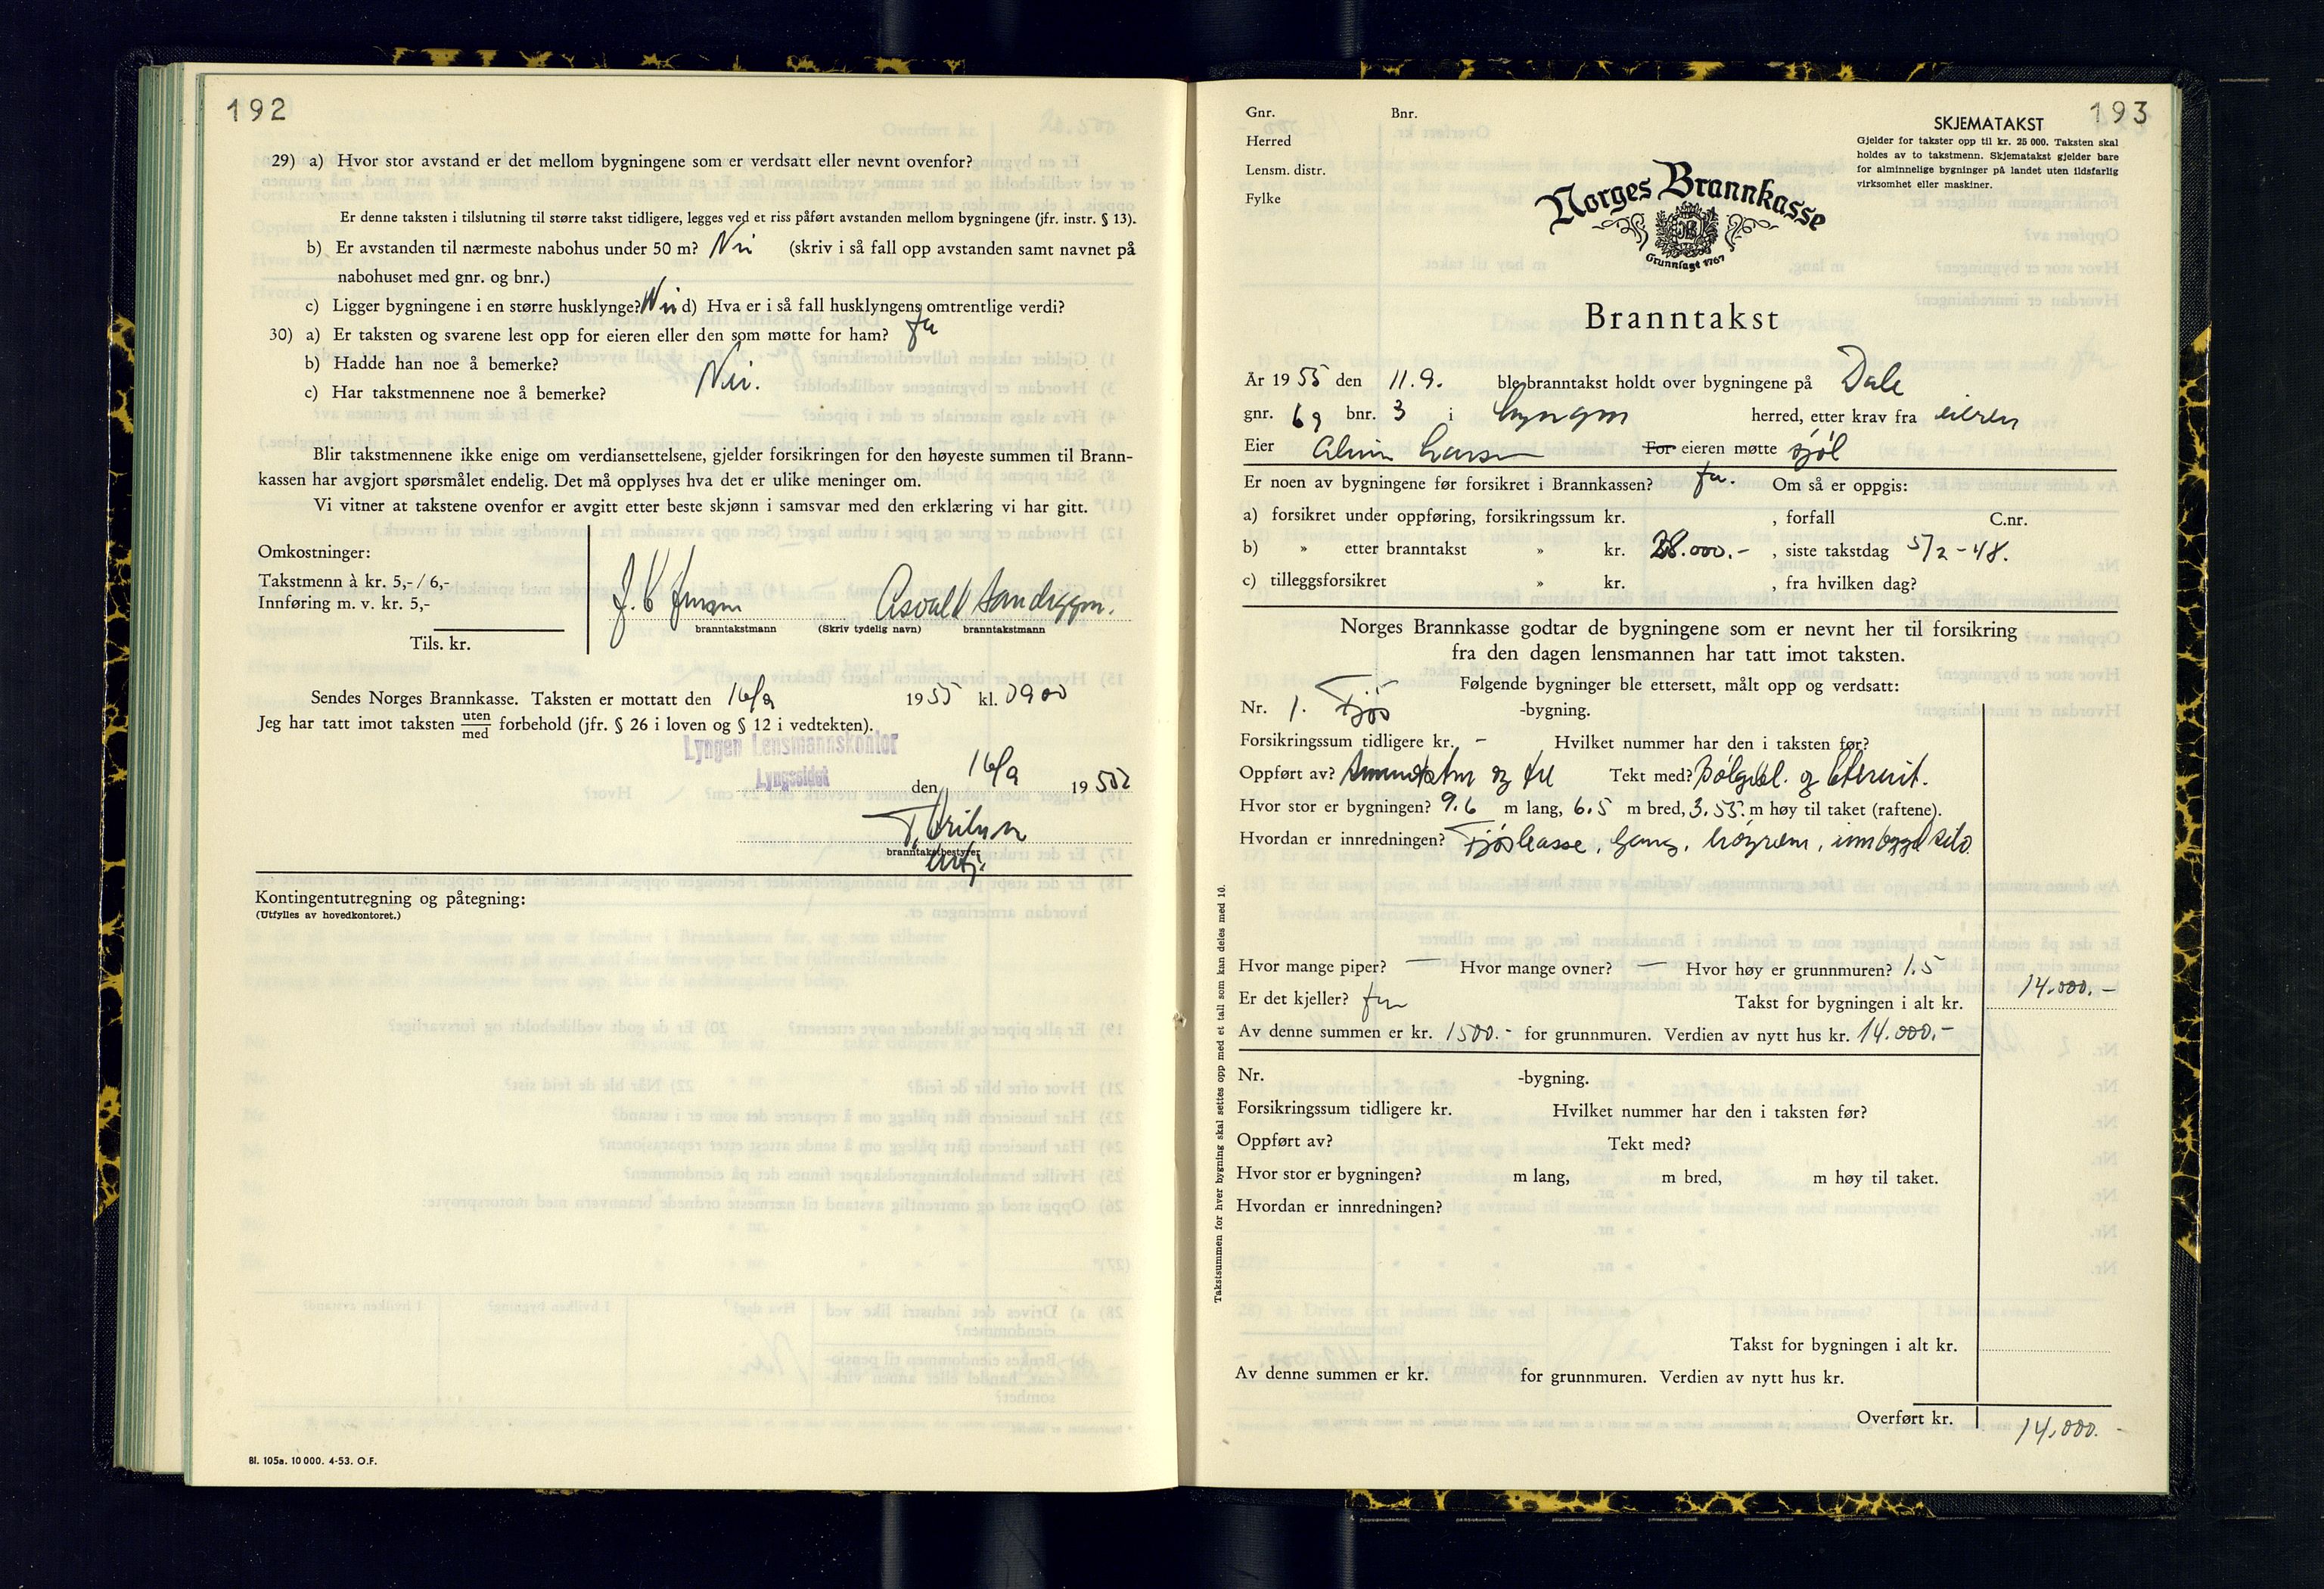 192
29) a) Hvor stor avstand er det mellom bygningene som er verdsatt eller nevnt ovenfor?
Er denne taksten i tilslutning til større takst tidligere, legges ved et riss påført avstanden mellom bygningene (jfr. instr. § 13).
b) Er avstanden til nærmeste nabohus under 50 m? Nei (skriv i så fall opp avstanden samt navnet på
nabohuset med gnr. og bnr.)
c) Ligger bygningene i en større husklynge? Nei d) Hva er i så fall husklyngens omtrentlige verdi?
30) a) Er taksten og svarene lest opp for eieren eller den som møtte for ham? Ja
b) Hadde han noe å bemerke?
c) Har takstmennene noe å bemerke? Nei.
Blir takstmennene ikke enige om verdiansettelsene, gjelder forsikringen for den høyeste summen til Brann-
kassen har avgjort spørsmålet endelig. Det må opplyses hva det er ulike meninger om.
Vi vitner at takstene ovenfor er avgitt etter beste skjønn i samsvar med den erklæring vi har gitt.
Omkostninger:
Takstmenn à kr. 5,- / 6,-
Innføring m. v. kr. 5,-
Tils. kr.
Asvald
branntakstmann (Skriv tydelig navn) branntakstmann
Sendes Norges Brannkasse. Taksten er mottatt den 16/9 1955 kl. 0900
Jeg har tatt imot taksten uten/med forbehold (jfr. § 26 i loven og § 12 i vedtekten).
Lyngen Lensmannskontor
Lyngseidet den 16/9 1955
branntakstbestyrer
Kontingentutregning og påtegning:
(Utfylles av hovedkontoret.)
Bl. 105a. 10 000. 4-53. O.F.
193
Gnr. Bnr.
Herred
Lensm. distr.
Fylke
SKJEMATAKST
Gjelder for takster opp til kr. 25 000. Taksten skal
holdes av to takstmenn. Skjematakst gjelder bare
for alminnelige bygninger på landet uten ildsfarlig
virksomhet eller maskiner.
Norges Brannkasse
Grunnlagt 1767
Branntakst
År 1955 den 11.9. ble branntakst holdt over bygningene på Dale
gnr. 69 bnr. 3 i Lyngen herred, etter krav fra eieren
Eier Larsen For eieren møtte sjøl
Er noen av bygningene før forsikret i Brannkassen? Ja. Om så er oppgis:
a) forsikret under oppføring, forsikringssum kr. , forfall C.nr.
b) » etter branntakst » kr. 28.000.- , siste takstdag 5/2-48.
c) tilleggsforsikret » kr. , fra hvilken dag?
Norges Brannkasse godtar de bygningene som er nevnt her til forsikring
fra den dagen lensmannen har tatt imot taksten.
Følgende bygninger ble ettersett, målt opp og verdsatt:
Nr. 1. Fjös -bygning.
Forsikringssum tidligere kr. - Hvilket nummer har den i taksten før?
Oppført av? og tre Tekt med? Bölgebl. og Eternit.
Hvor stor er bygningen? 9.6 m lang, 6.5 m bred, 3.55. m høy til taket (raftene).
Hvordan er innredningen? Fjöskasse, Gang, höyrom, innbygd silo
Hvor mange piper? — Hvor mange ovner? — Hvor høy er grunnmuren? 1.5
Er det kjeller? Ja Takst for bygningen i alt kr. 14.000.-
Av denne summen er kr. 1500.- for grunnmuren. Verdien av nytt hus kr. 14.000.-
Nr. -bygning.
Forsikringssum tidligere kr. Hvilket nummer har den i taksten før?
Oppført av? Tekt med?
Hvor stor er bygningen? m lang, m bred, m høy til taket.
Hvordan er innredningen?
Takst for bygningen i alt kr.
Av denne summen er kr. for grunnmuren. Verdien av nytt hus kr.
Overført kr. 14.000.-
Takstsummen for hver bygning skal settes opp med et tall som kan deles med 10.